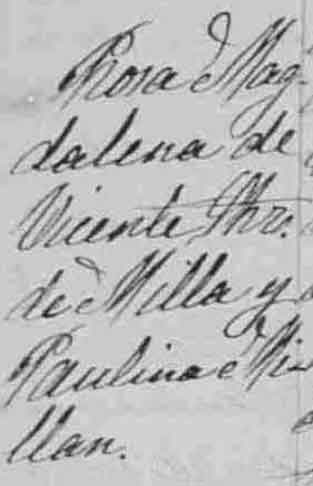 Rosa Mag-
dalena de
Vicente
de Milla y
Paulina Mi-
llan.